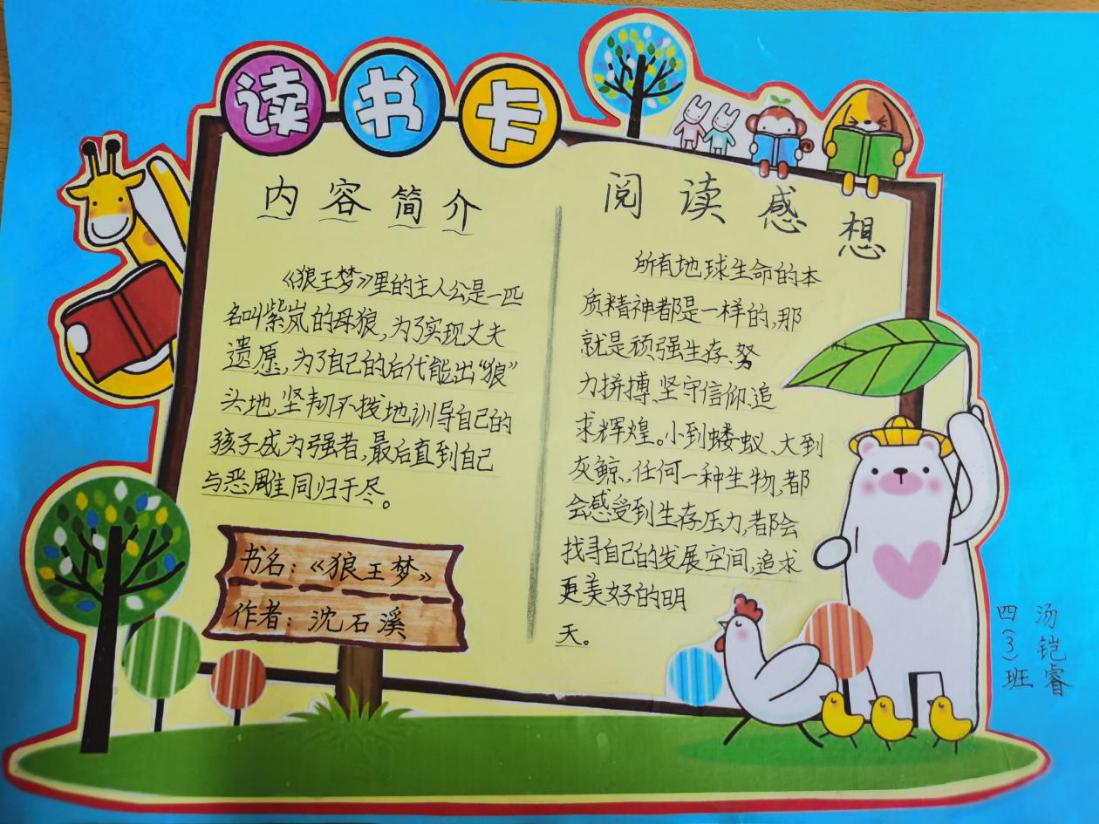 读书卡
内容简介
《狼王梦》里的主人公是一匹
名叫紫岚的母狼,为了实现丈夫
遗愿,为了自己的后代能出“狼”
头地,坚韧不拔地训导自己的
孩子成为强者,最后直到自己
与恶雕同归于尽。
书名:《狼王梦》
作者:沈石溪
阅读感想
所有地球生命的本
质精神都是一样的,那
就是顽强生存、努
力拼搏、坚守信仰、追
求辉煌。小到蝼蚁、大到
灰鲸,任何一种生物,都
会感受到生存压力,都会
找寻自己的发展空间,追求
更美好的明
天。
四(3)班
汤铠睿